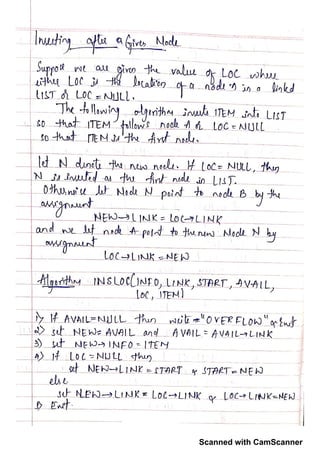 Inserting after a Given Node
Suppose we are given the value of LOC where
either LOC is the location of a node A in a linked
LIST or LOC = NULL.
The following algorithm inserts ITEM into LIST
so that ITEM follows node A or LOC = NULL
so that ITEM is the first node.
let N denote the new node. If LOC = NULL, then
N is inserted as the first node in LIST.
Otherwise let Node N point to node B by the
assignment
NEW→LINK = LOC→LINK
and we let node A point to the new Node N by
assignment
LOC→LINK = NEW
Algorithm INSLOC(INFO, LINK, START, AVAIL,
LOC, ITEM)
1) If AVAIL=NULL then write "OVERFLOW" & Exit
2) set NEW= AVAIL and AVAIL = AVAIL→LINK
3) set NEW→INFO = ITEM
4) If LOC = NULL then
set NEW→LINK = START & START= NEW
else
set NEW→LINK = LOC→LINK & LOC→LINK=NEW
Exit.
Scanned with CamScanner